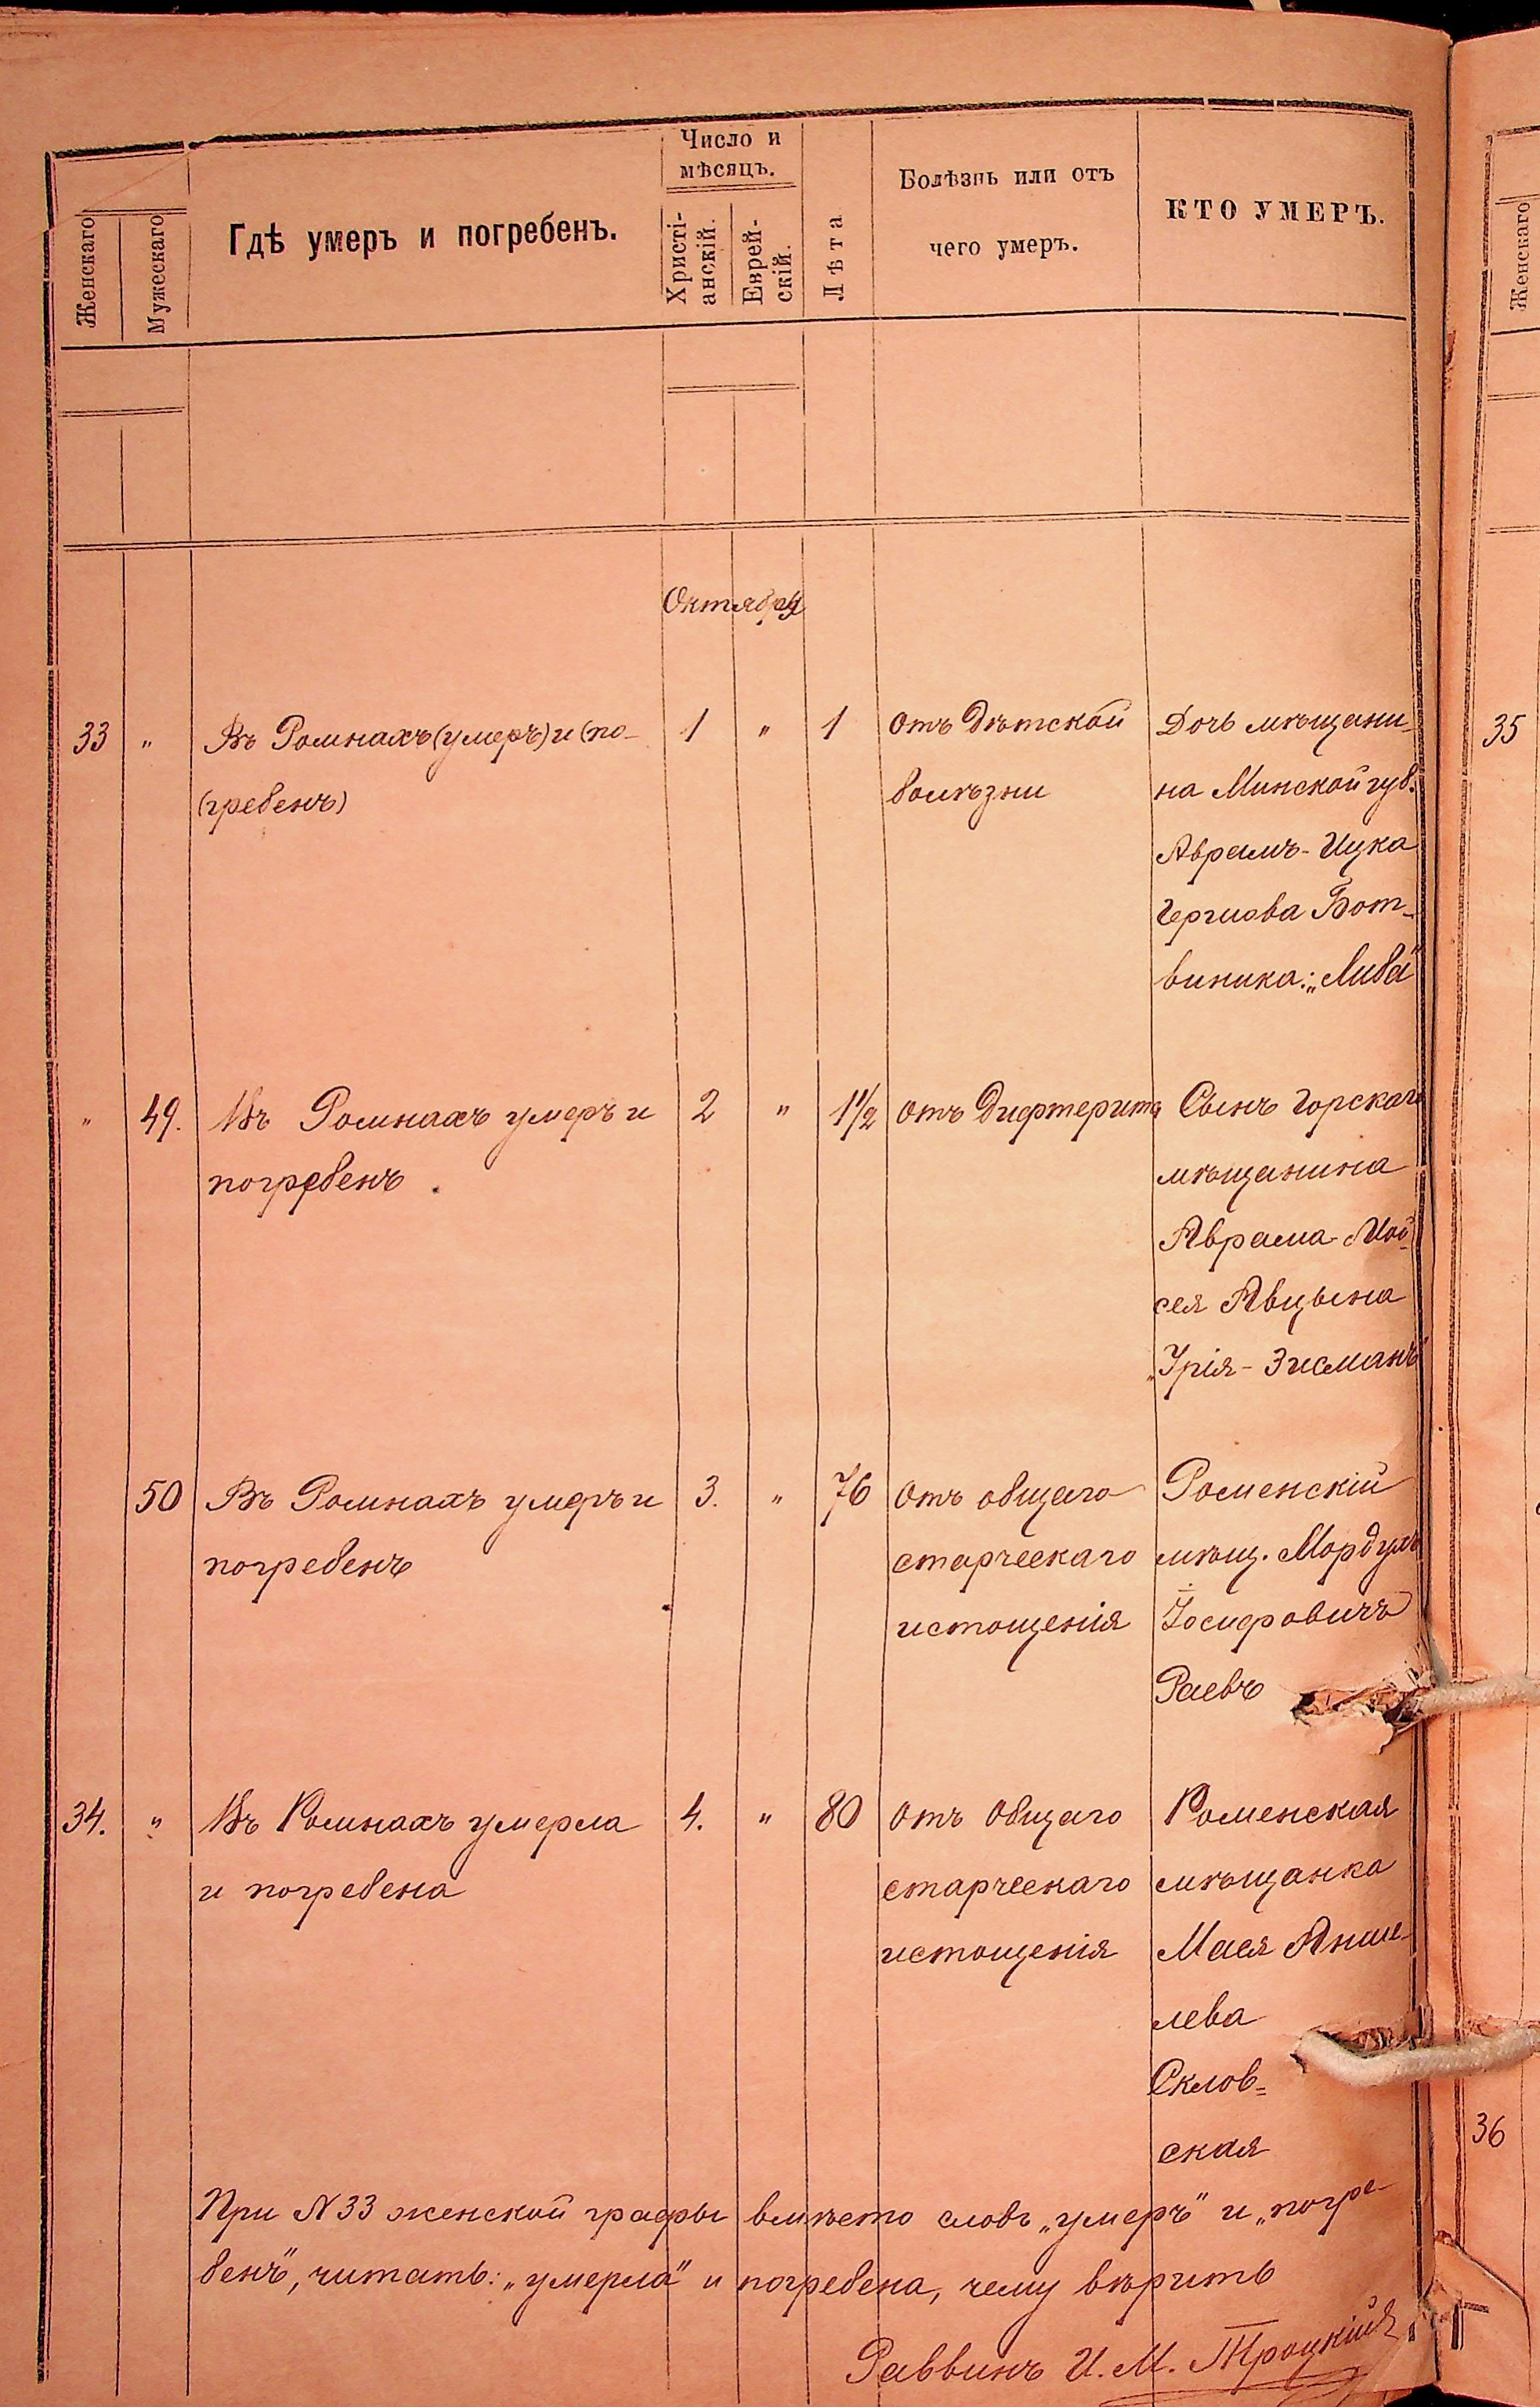 Женскаго
Мужескаго
Гдѣ умеръ и погребенъ.
Число и
мѣсяцъ.
Христі-
анскій.
Еврей-
скій.
Лѣта
Болѣзнь или отъ
чего умеръ.
КТО УМЕРЪ.
Женскаго
Октября
33 " Въ Ромнахъ (умеръ) и (по- 1 " 1 отъ Дѣтской Дочь мѣщани-
(гребенъ) болѣзни на Минской губ.
Аврамъ-Ицка
Бот-
виника: „Либа"
" 49. Въ Ромнахъ умеръ и 2 " 1 1/2 отъ Дифтерита Сынъ Горскаго
погребенъ мѣщанина
Аврама-Мой-
сея Авцына
„Урія-Зисманъ"
50 Въ Ромнахъ умеръ и 3. " 76 отъ общаго Роменскій
погребенъ старческаго мѣщ. Мордухъ
истощенія Іосифовичъ
Раевъ
34. " Въ Ромнахъ умерла 4. " 80 отъ Общаго Роменская
и погребена старческаго мѣщанка
истощенія Мася Анше-
лева
Склов=
ская
При N 33 женской графы вмѣсто словъ „умеръ" и „погре-
бенъ", читать: „умерла" и погребена, чему вѣрить
Раввинъ И. М. Троцкій
35
36